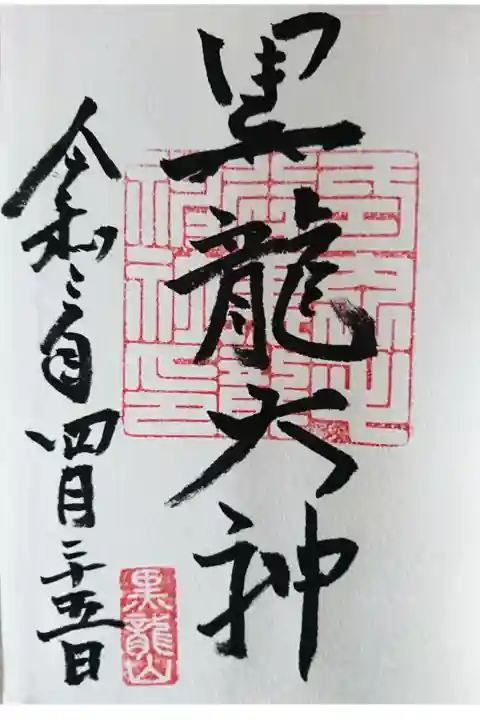 黒龍大神
令和三年四月二十五日
黒龍山